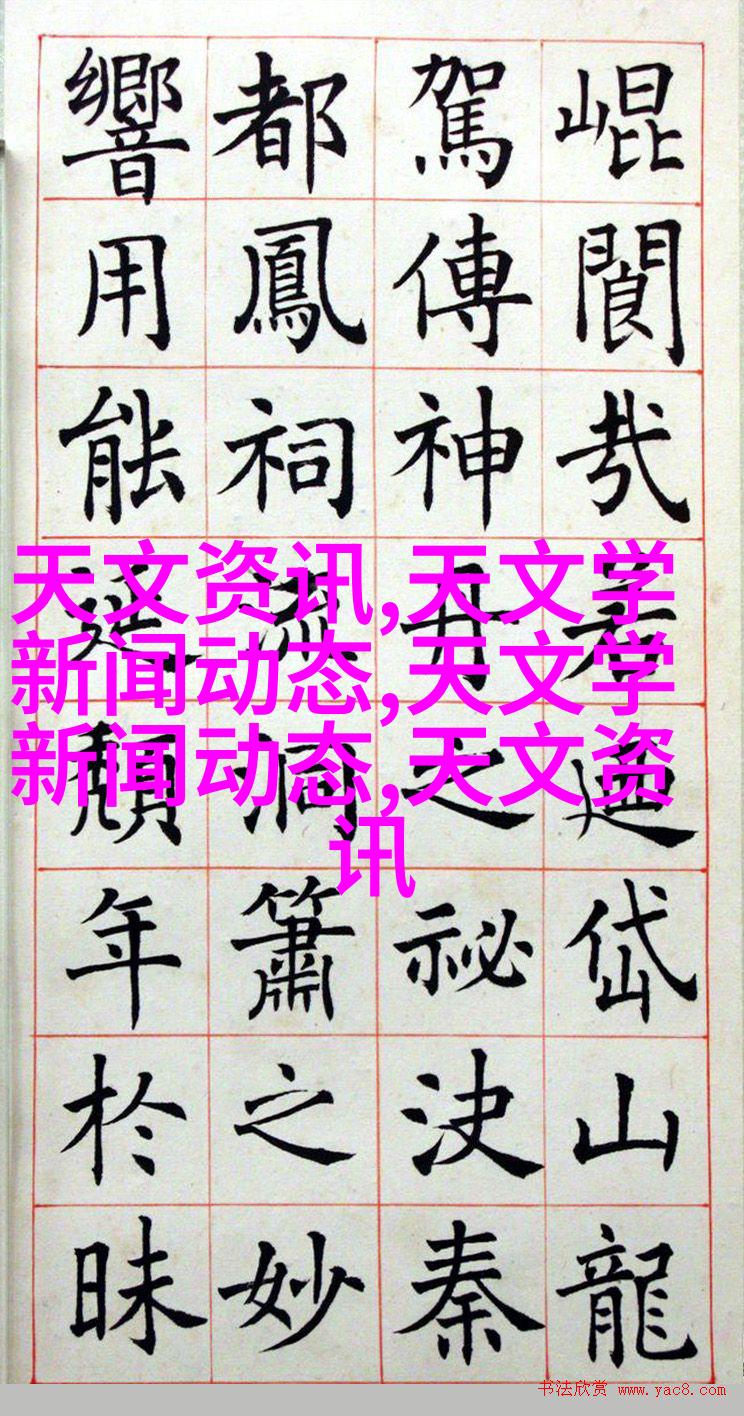 崐閬若迺岱山龍
駕傳神丹之祕決秦
都鳳祠流洞簫之妙
響用能延頽年於昧
天文资讯,天文学
新闻动态,天文学
新闻动态,天文资
讯
书法欣赏 www.yac8.com